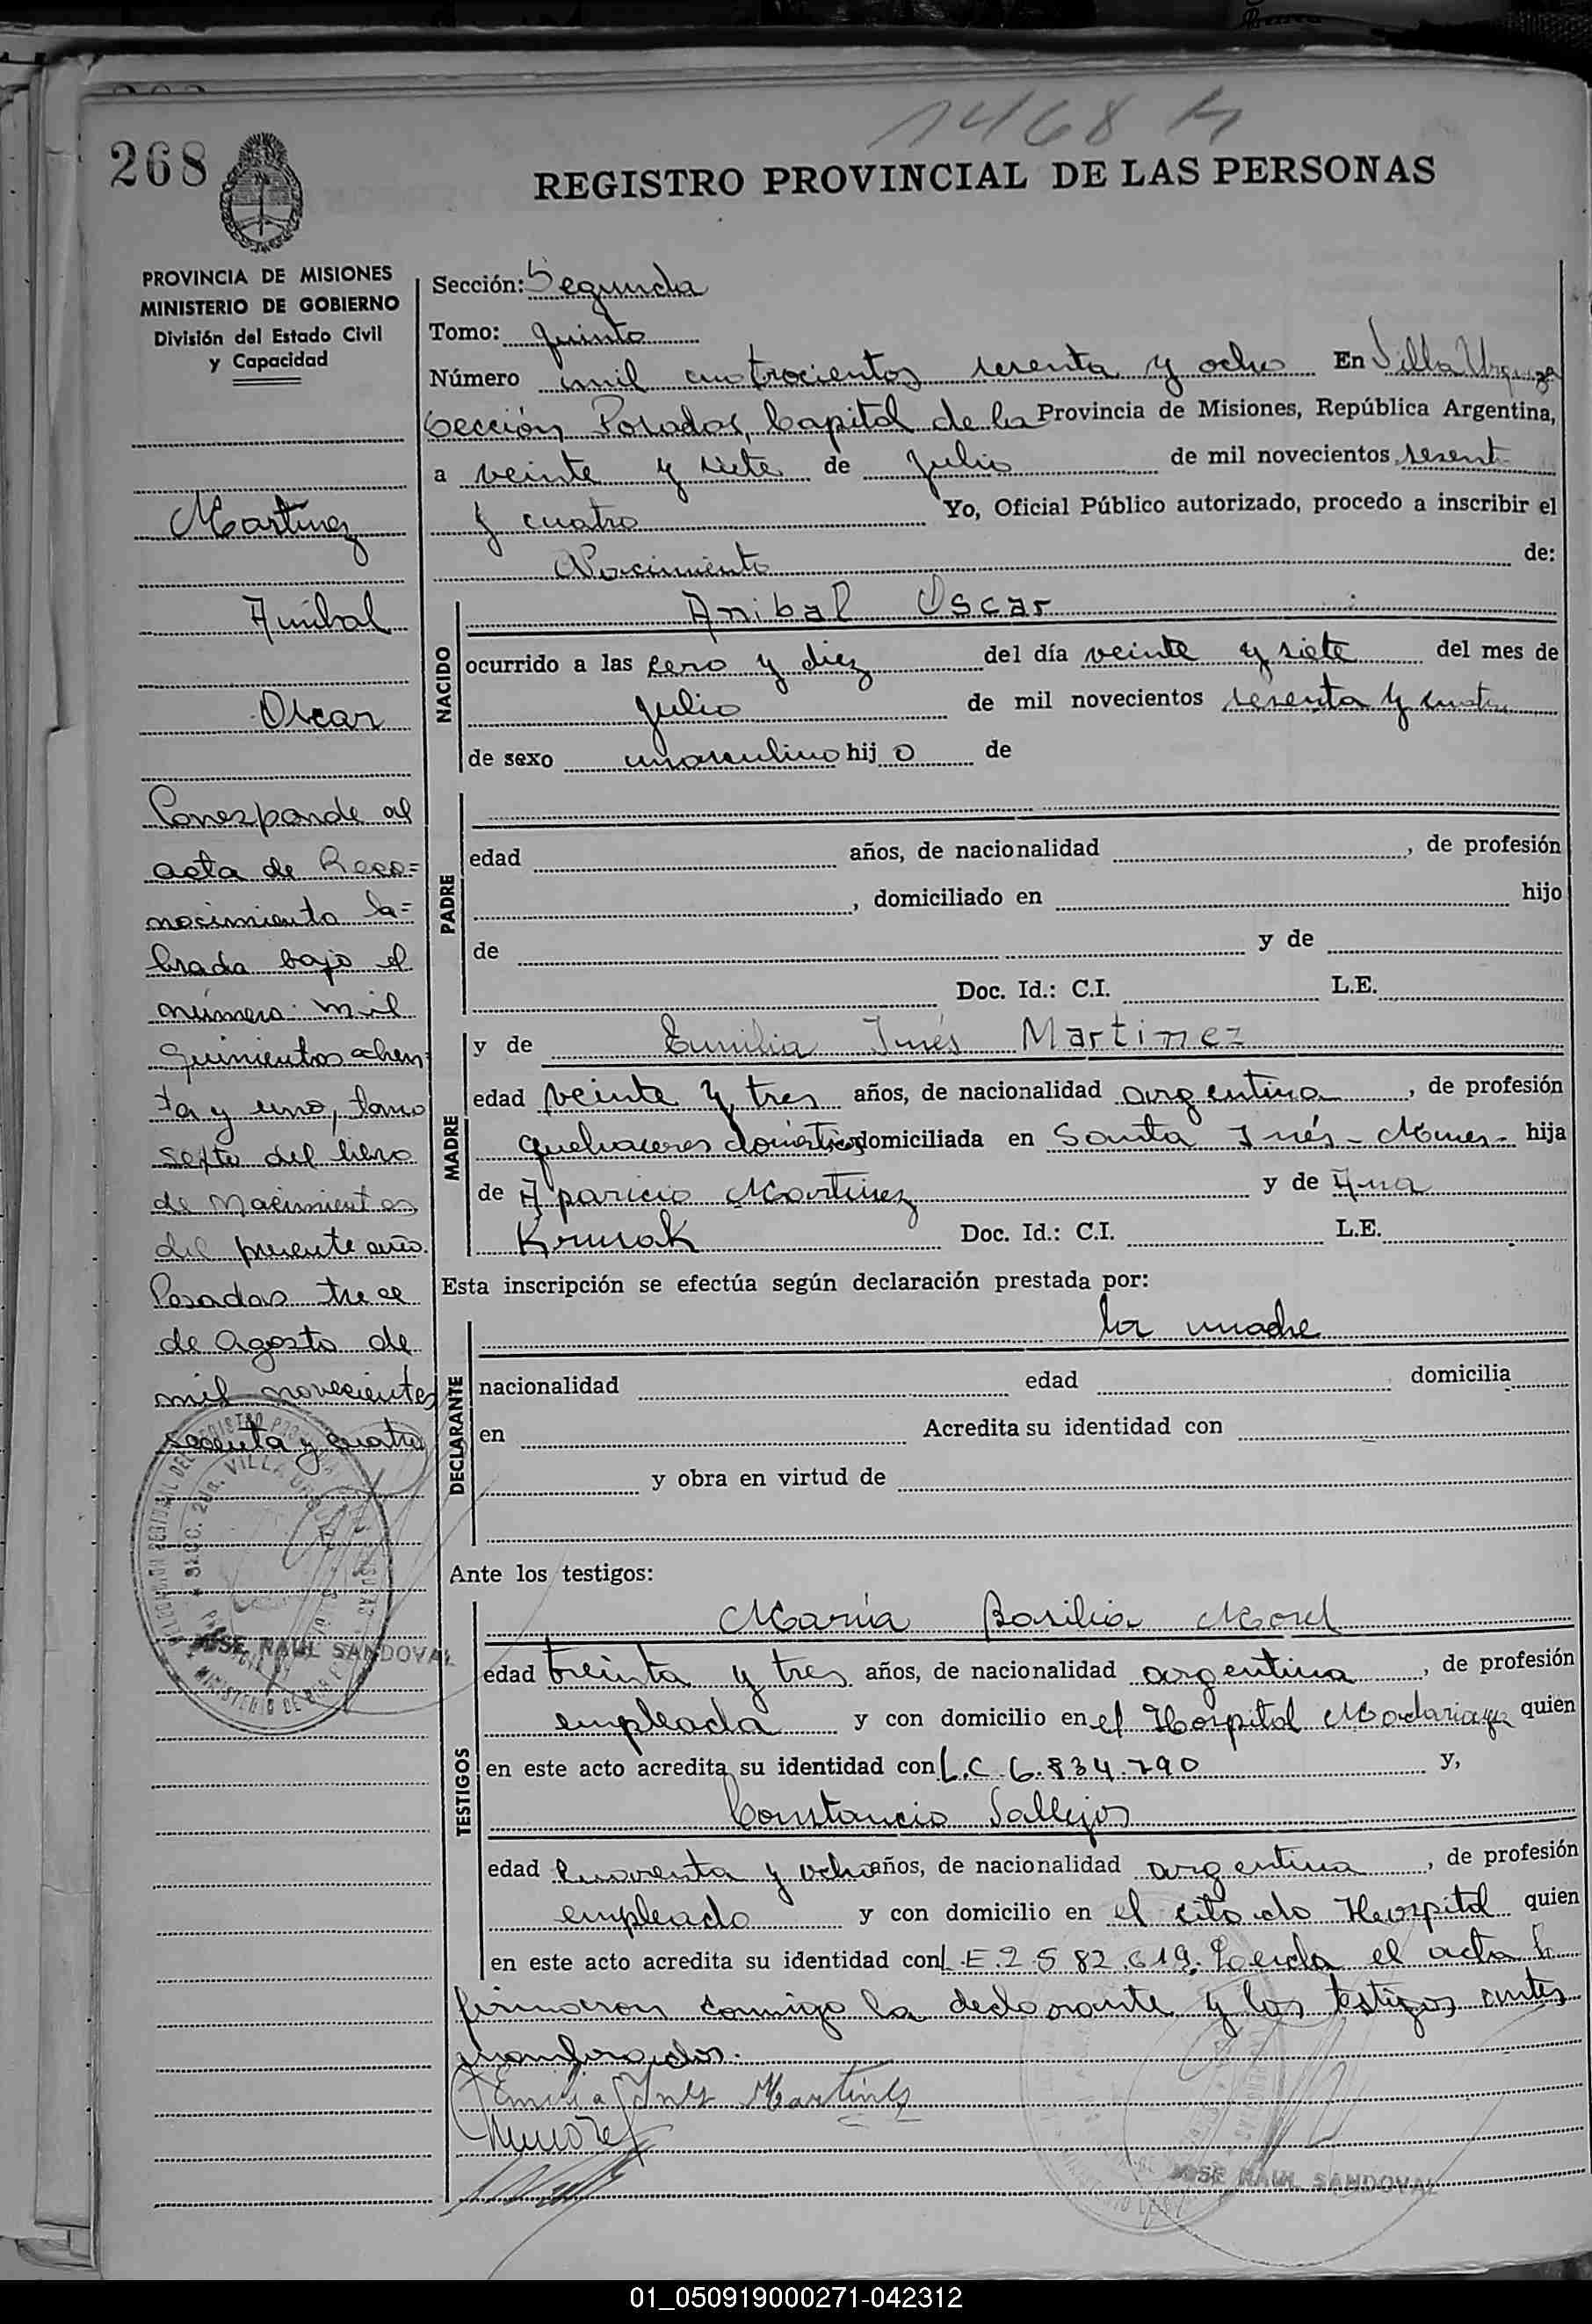 1468 M
268
REGISTRO PROVINCIAL DE LAS PERSONAS
PROVINCIA DE MISIONES
MINISTERIO DE GOBIERNO
División del Estado Civil
y Capacidad
Martinez
Anibal
Oscar
Corresponde al
acta de Reco=
nocimiento la=
brada bajo el
número mil
quinientos ochen
ta y uno, tomo
septo del libro
de Nacimientos
del presente año.
Posadas trece
de Agosto de
mil novecientos
sesenta y cuatro
SECC. 2da. VILLA URQUIZA
JOSE RAUL SANDOVAL
Sección: Segunda
Tomo: quinto
Número mil cuatrocientos sesenta y ocho En Villa Urquiza
Sección Posadas, Capital de la Provincia de Misiones, República Argentina,
a veinte y siete de julio de mil novecientos sesent
y cuatro Yo, Oficial Público autorizado, procedo a inscribir el
Nacimiento de:
NACIDO
Anibal Oscar
ocurrido a las cero y diez del día veinte y siete del mes de
julio de mil novecientos sesenta y cuatro
de sexo masculino hijo de
PADRE
edad años, de nacionalidad , de profesión
, domiciliado en hijo
de y de
Doc. Id.: C.I. L.E.
MADRE
y de Emilia Inés Martinez
edad veinte y tres años, de nacionalidad argentina , de profesión
quehaceres domésticos domiciliada en Santa Inés - Mnes - hija
de Aparicio Martinez y de Ana
Krusak Doc. Id.: C.I. L.E.
Esta inscripción se efectúa según declaración prestada por:
DECLARANTE
la madre
nacionalidad edad domicilia
en Acredita su identidad con
y obra en virtud de
Ante los testigos:
TESTIGOS
María Basilia Morel
edad treinta y tres años, de nacionalidad argentina , de profesión
empleada y con domicilio en el Hospital Madariaga quien
en este acto acredita su identidad con L.C 6.834.790 y,
Constancio Vallejos
edad cuarenta y ocho años, de nacionalidad argentina , de profesión
empleado y con domicilio en el citado Hospital quien
en este acto acredita su identidad con L.E.2.582.619. Leida el acta la
firmaron conmigo la declarante y los testigos antes
nombrados.
Emilia Ines Martinez
JOSE RAUL SANDOVAL
01_050919000271-042312